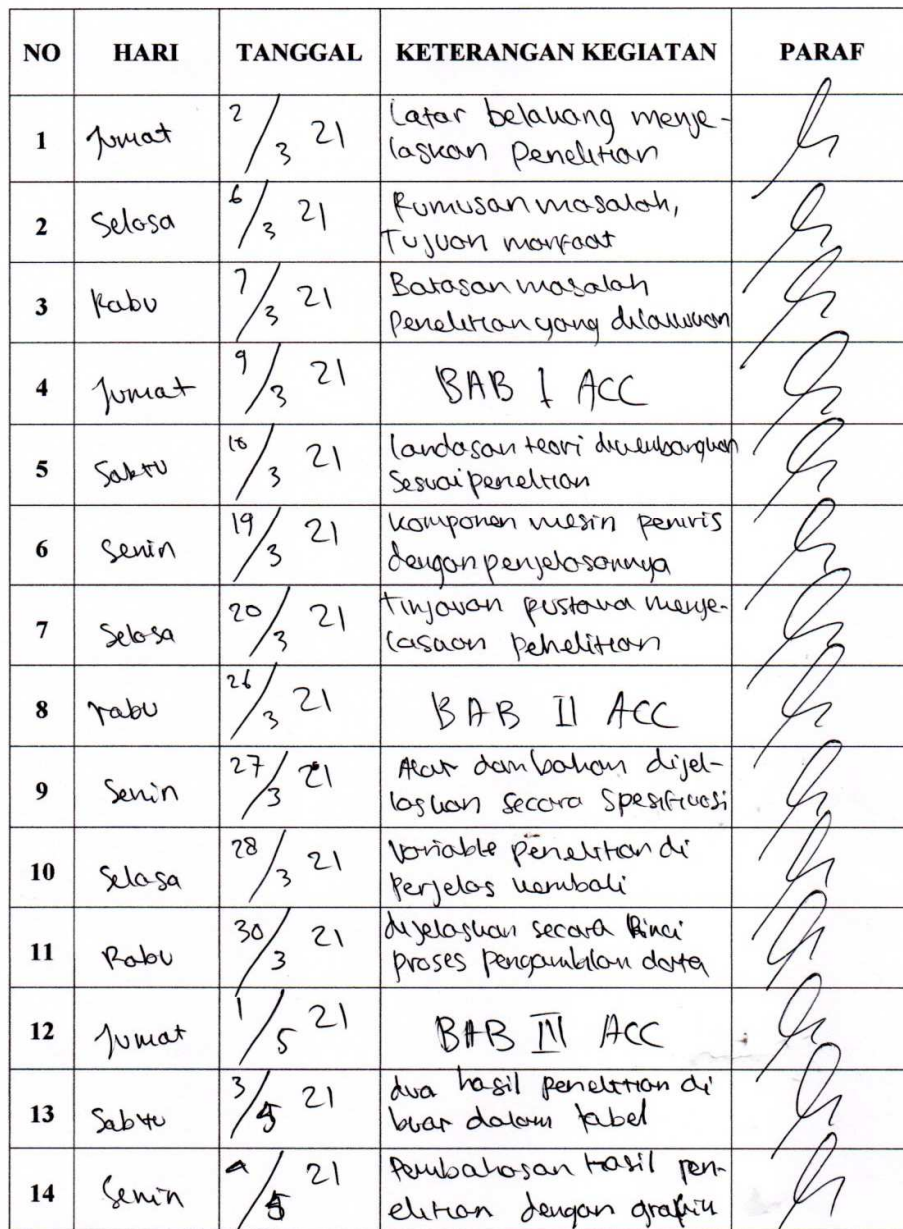 NO HARI TANGGAL KETERANGAN KEGIATAN PARAF
1 Jumat 2/3 21 Latar belakang menje-
laskan Penelitian
2 Selasa 6/3 21 Rumusan masalah,
Tujuan manfaat
3 Rabu 7/3 21 Batasan masalah
Penelitian yang dilakukan
4 Jumat 9/3 21 BAB I ACC
5 Sabtu /3 21 landasan teori dikembangkan
Sesuai penelitian
6 Senin 19/3 21 komponen mesin peniris
dengan penjelasannya
7 Selasa 20/3 21 tinjauan pustaka menje-
laskan Penelitian
8 rabu 26/3 21 BAB II ACC
9 Senin 27/3 21 Alat dan bahan dijel-
laskan secara spesifikasi
10 Selasa 28/3 21 Variable penelitian di
Perjelas kembali
11 Rabu 30/3 21 dijelaskan secara Rinci
proses pengambilan data
12 Jumat 1/5 21 BAB III ACC
13 Sabtu 3/5 21 dua hasil penelitian di
buat dalam tabel
14 Senin 4/5 21 Pembahasan hasil pen-
elitian dengan grafik